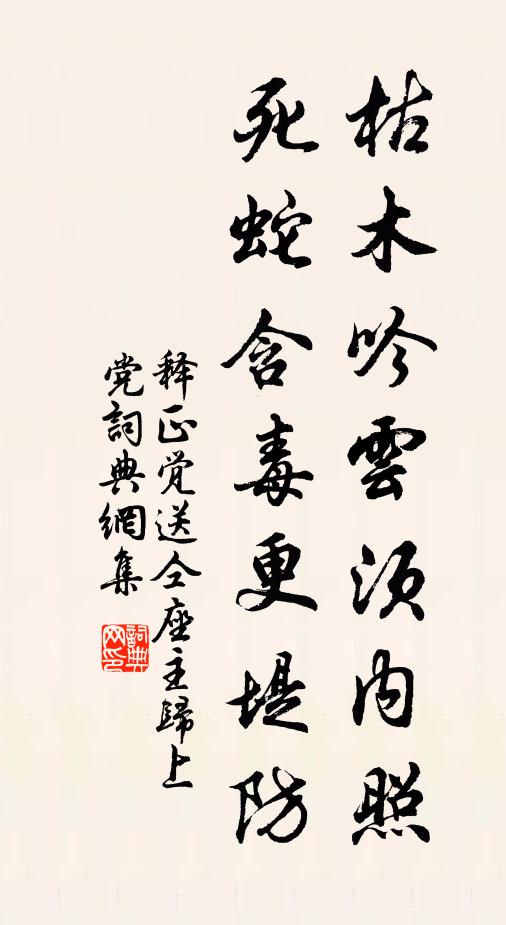 枯木吟雲須内照
死蛇含毒更堤防
释正觉送仝座主歸上
党詞典網集
詞典
网印